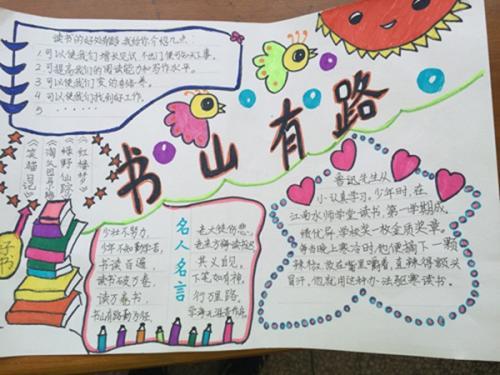 读书的好处有许多,我给你介绍几点
1.可以使我们增长见识,不出门便可知天下事。
2.可提高我们的阅读能力和写作水平。
3.可以使我们变的有修养。
4.可以使我们找到好工作。
5 ......
书山有路
《红楼梦》
《绿野仙踪》
《淘气包马小跳》
《笑猫日记》
好书
名人名言
少壮不努力, 老大徒伤悲。
少年不知勤学苦, 老来方悔读书迟。
书读百遍, 其义自见。
读书破万卷, 下笔如有神。
读万卷书, 行万里路。
书山有路勤为径, 学海无涯苦作舟。
鲁迅先生从
小认真学习。少年时,在
江南水师学堂读书,第一学期成
绩优异,学校奖一枚金质奖章。
每当晚上寒冷时,他便摘下一颗
辣椒,放在嘴里嚼着,直辣得额头
冒汗。他就用这种办法驱寒读书。